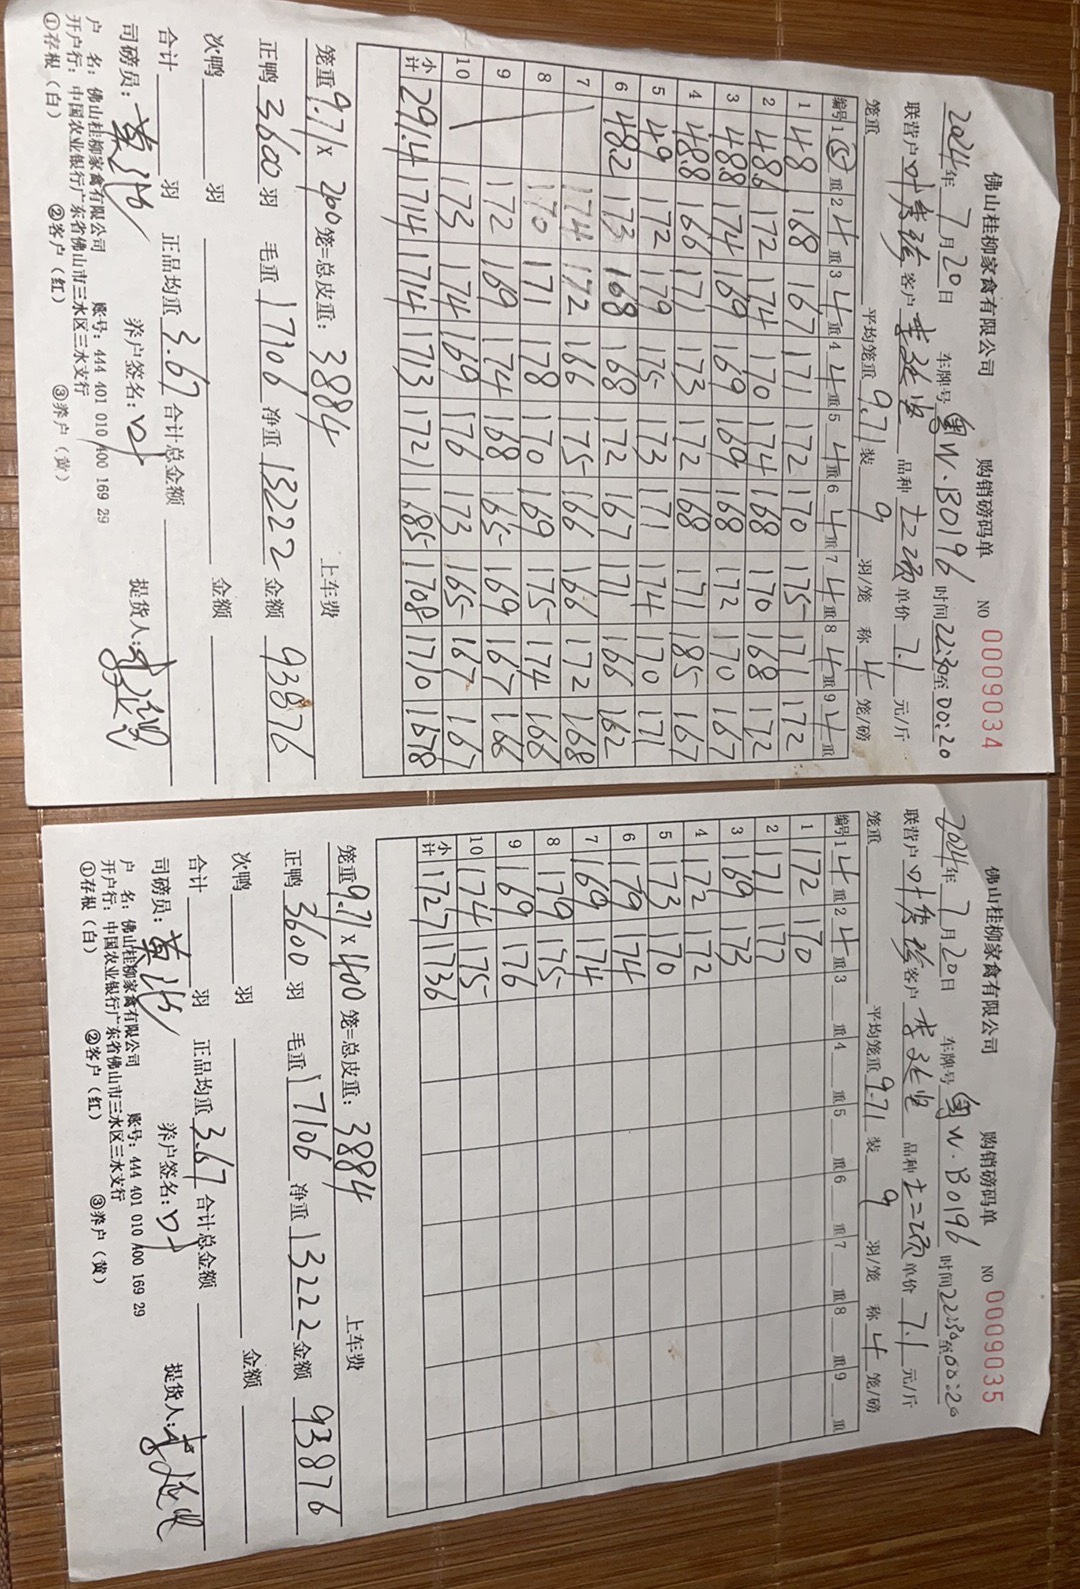 佛山桂柳家禽有限公司 购销磅码单 NO 0009034
2024年7月20日 车牌号 粤W·B0196 时间 22:30至00:20
联营户 叶 客户 李 品种 单价 7.1 元/斤
笼重 平均笼重 9.71 装 9 羽/笼 称 4 笼/磅
编号 1 ⑤ 重 2 4 重 3 4 重 4 4 重 5 4 重 6 4 重 7 4 重 8 4 重 9 4 重
1 48 168 167 171 172 170 175 171 172
2 48.6 172 174 170 174 168 170 168 172
3 48.8 174 169 169 169 168 172 170 167
4 48.8 166 171 173 172 168 171 185 167
5 49 172 179 175 173 171 174 170 171
6 48.2 173 168 168 172 167 171 166 162
7 174 172 166 175 166 166 172 168
8 170 171 178 170 169 175 174 166
9 172 169 174 168 165 169 167 166
10 173 174 169 176 173 165 167 167
小计 291.4 1714 1714 1713 1721 1685 1708 1710 1678
笼重 9.71 × 400 笼=总皮重: 3884 上车费
正鸭 3600 羽 毛重 17106 净重 13222 金额 93876
次鸭 羽 金额
合计 羽 正品均重 3.67 合计总金额
司磅员: 黄 养户签名: 叶 提货人: 李
户 名: 佛山桂柳家禽有限公司 账号: 444 401 010 400 169 29
开户行: 中国农业银行广东省佛山市三水区三水支行
①存根(白) ②客户(红) ③养户(黄)
佛山桂柳家禽有限公司 购销磅码单 NO 0009035
2024年7月20日 车牌号 粤W·B0196 时间 22:30至00:20
联营户 叶 客户 李 品种 单价 7.1 元/斤
笼重 平均笼重 9.71 装 9 羽/笼 称 4 笼/磅
编号 1 4 重 2 4 重 3 重 4 重 5 重 6 重 7 重 8 重 9 重
1 172 170
2 171 177
3 169 173
4 172 172
5 173 170
6 179 174
7 169 174
8 179 175
9 169 176
10 174 175
小计 1727 1736
笼重 9.71 × 400 笼=总皮重: 3884 上车费
正鸭 3600 羽 毛重 17106 净重 13222 金额 93876
次鸭 羽 金额
合计 羽 正品均重 3.67 合计总金额
司磅员: 黄 养户签名: 叶 提货人: 李
户 名: 佛山桂柳家禽有限公司 账号: 444 401 010 400 169 29
开户行: 中国农业银行广东省佛山市三水区三水支行
①存根(白) ②客户(红) ③养户(黄)